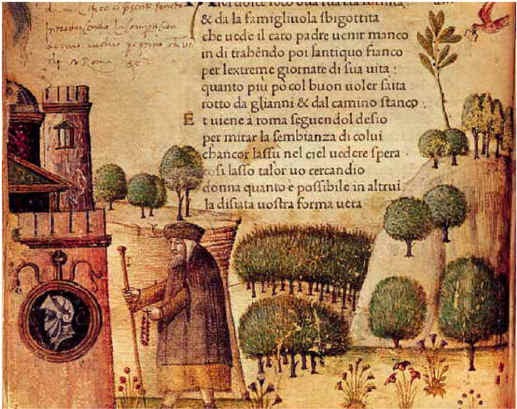 dolce loco
& da la famigliuola sbigottita
che uede il caro padre uenir manco
in di trahēdo poi lantiquo fianco
per lextreme giornate di sua uita :
quanto piu po col buon uoler saita
rotto da glianni & dal camino stanco .
E t uiene a roma seguendol desio
per mirar la sembianza di colui
chancor lassu nel ciel uedere spera
osi lasso talor uo cercandio
donna quanto e possibile in altrui
la disiata uostra forma uera